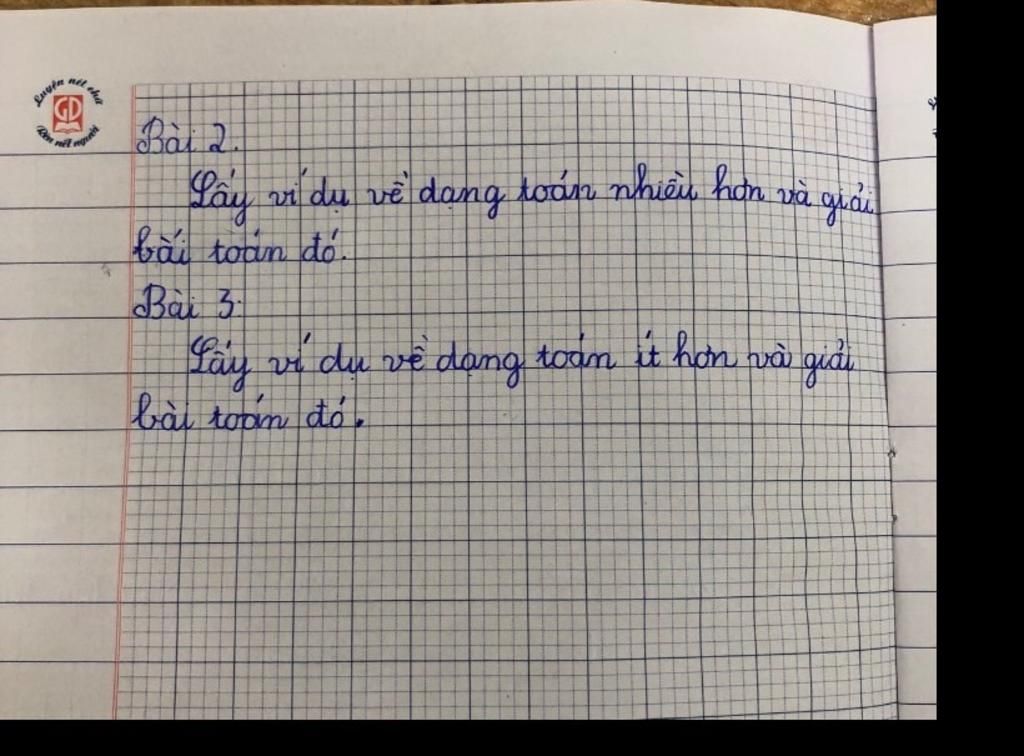 Luyện nét chữ
GD
Rèn nết người
Bài 2.
Lấy ví dụ về dạng toán nhiều hơn và giải
bài toán đó.
Bài 3.
Lấy ví dụ về dạng toán ít hơn và giải
bài toán đó.